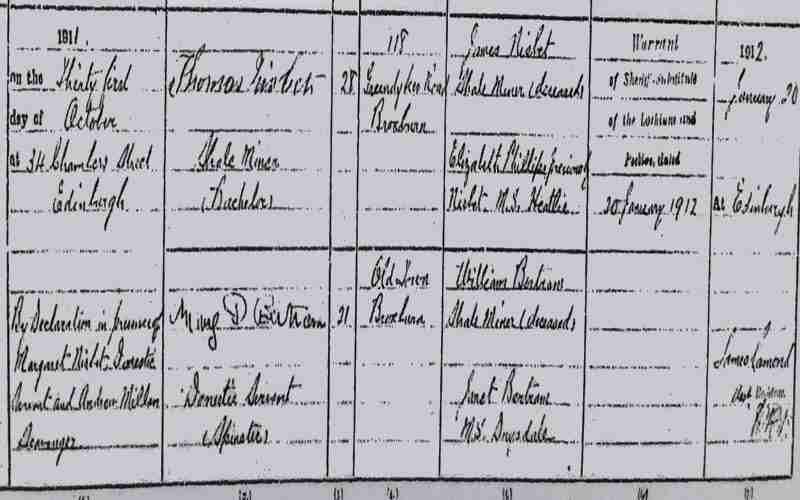 1911.
on the Thirty first
day of October
at 34 Chambers Street
Edinburgh
By Declaration in presence of
Margaret Nisbet Domestic
Servant and Andrew Millan
Scavenger
Thomas Nisbet
Shale Miner
(Bachelor)
Mary D Bertram
Domestic Servant
(Spinster)
28
21
118
Greendykes Road
Broxburn
Old Town
Broxburn
James Nisbet
Shale Miner (deceased)
Elizabeth Phillips previously
Nisbet M.S.
William Bertram
Shale Miner (deceased)
Janet Bertram
M.S. Drysdale
Warrant
of Sheriff-Substitute
of the Lothians and
Peebles, dated
20 January 1912
1912.
January 20
at Edinburgh
James Lamond
Registrar